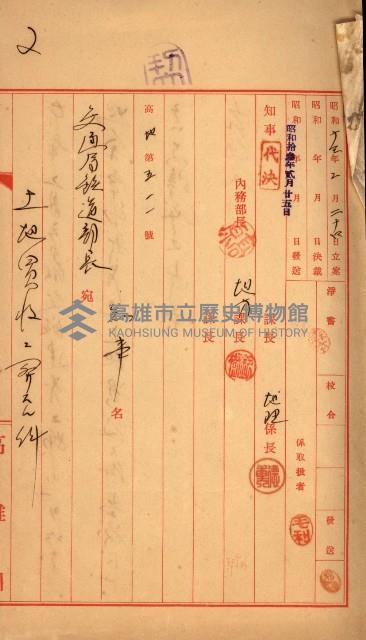 昭和十三年二月二十六日立案
昭和 年 月 日決裁
昭和 年 月 日發送
淨書
校合
發送
昭和拾參年貳月廿五日
知事
代決
內務部長
地方課長
課長
地理係長
係取扱者
毛利
高地第五一一號
知事名
交通局鐵道部長宛
土地買收ニ関スル件
高雄州
高雄市立歷史博物館
KAOHSIUNG MUSEUM OF HISTORY
2